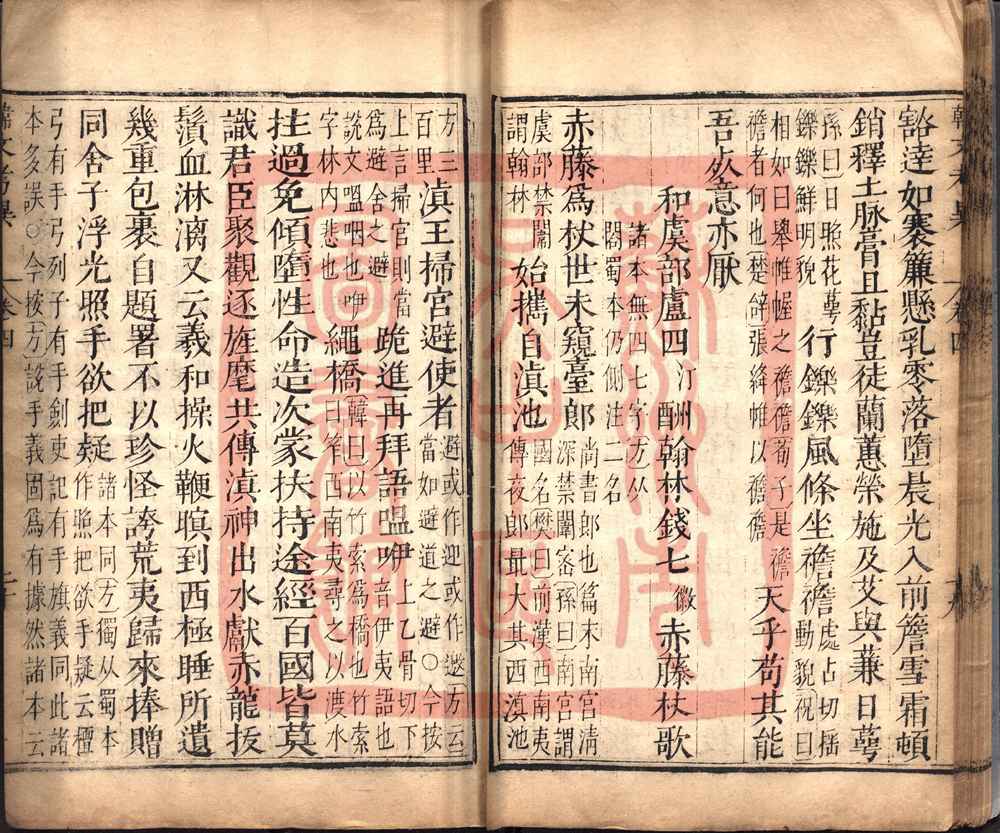 豁達如褰簾懸乳零落墮晨光入前簷雪霜頓
銷釋土脉膏且黏豈徒蘭蕙榮施及艾與蒹日萼
孫曰日照花萼
鑠鑠鮮明貌
行鑠鑠風條坐襜襜
處占切搖
動貌祝曰
相如曰舉帷幄之襜襜荀子是襜
襜者何也楚辭張絳帷以襜襜
天乎苟其能
吾死意亦厭
和虞部盧四汀酬翰林錢七徽赤藤杖歌
諸本無四七字方从
閣蜀本仍側注二名
赤藤爲杖世未窺臺郎
尚書郎也篇末南宮清
深禁闈宻孫曰南宮謂
虞部禁闈
謂翰林
始攜自滇池
國名樊曰前漢西南夷
傳夜郎最大其西滇池
方三
百里
滇王掃宮避使者
避或作迎或作邀方云
當如避道之避○今按
上言掃宮則當
爲避舍之避
跪進再拜語嗢咿
上乙骨切下
音伊夷語也
說文嗢咽也咿
字林内悲也
繩橋
韓曰以竹索爲橋也竹索
曰笮西南夷尋之以渡水
拄過免傾墮性命造次蒙扶持途經百國皆莫
識君臣聚觀逐旌麾共傳滇神出水獻赤龍拔
鬚血淋漓又云羲和操火鞭瞑到西極睡所遺
幾重包裹自題署不以珍怪誇荒夷歸來捧贈
同舍子浮光照手欲把疑
諸本同方獨从蜀本
作照把欲手疑云檀
弓有手弓列子有手劍史記有手旗義同此諸
本多誤○今按方說手義固爲有據然諸本云
韓文考異
卷四
蘇州市
吳中區
圖書館